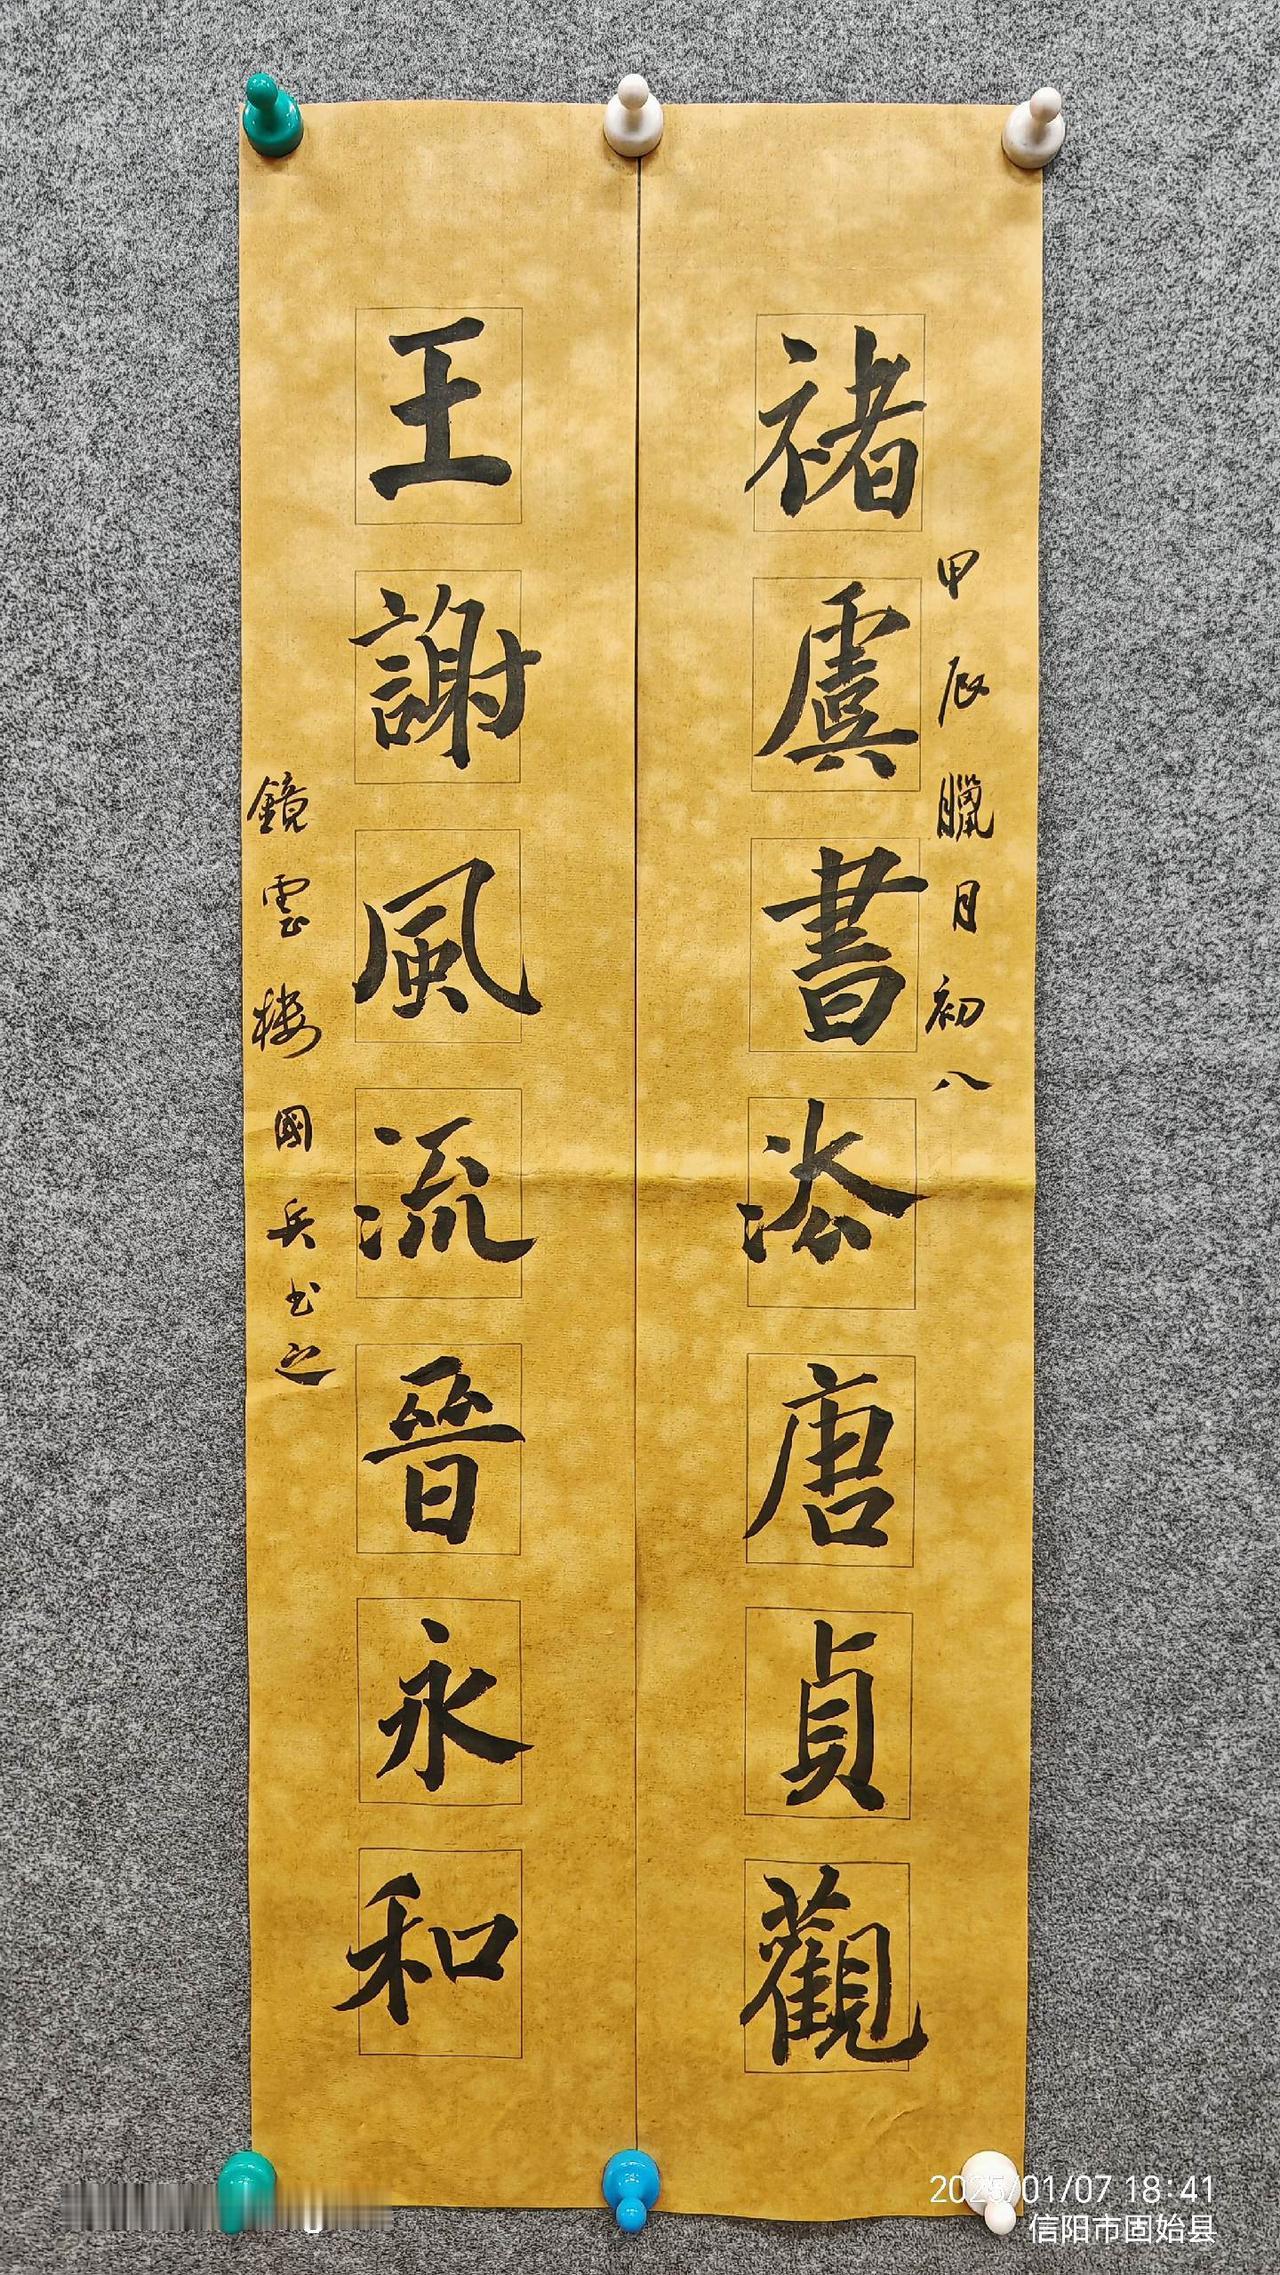 甲辰臘月初八
褚虞書法唐貞觀
王謝風流晉永和
鏡雲樓國兵书之
2025/01/07 18:41
信阳市固始县